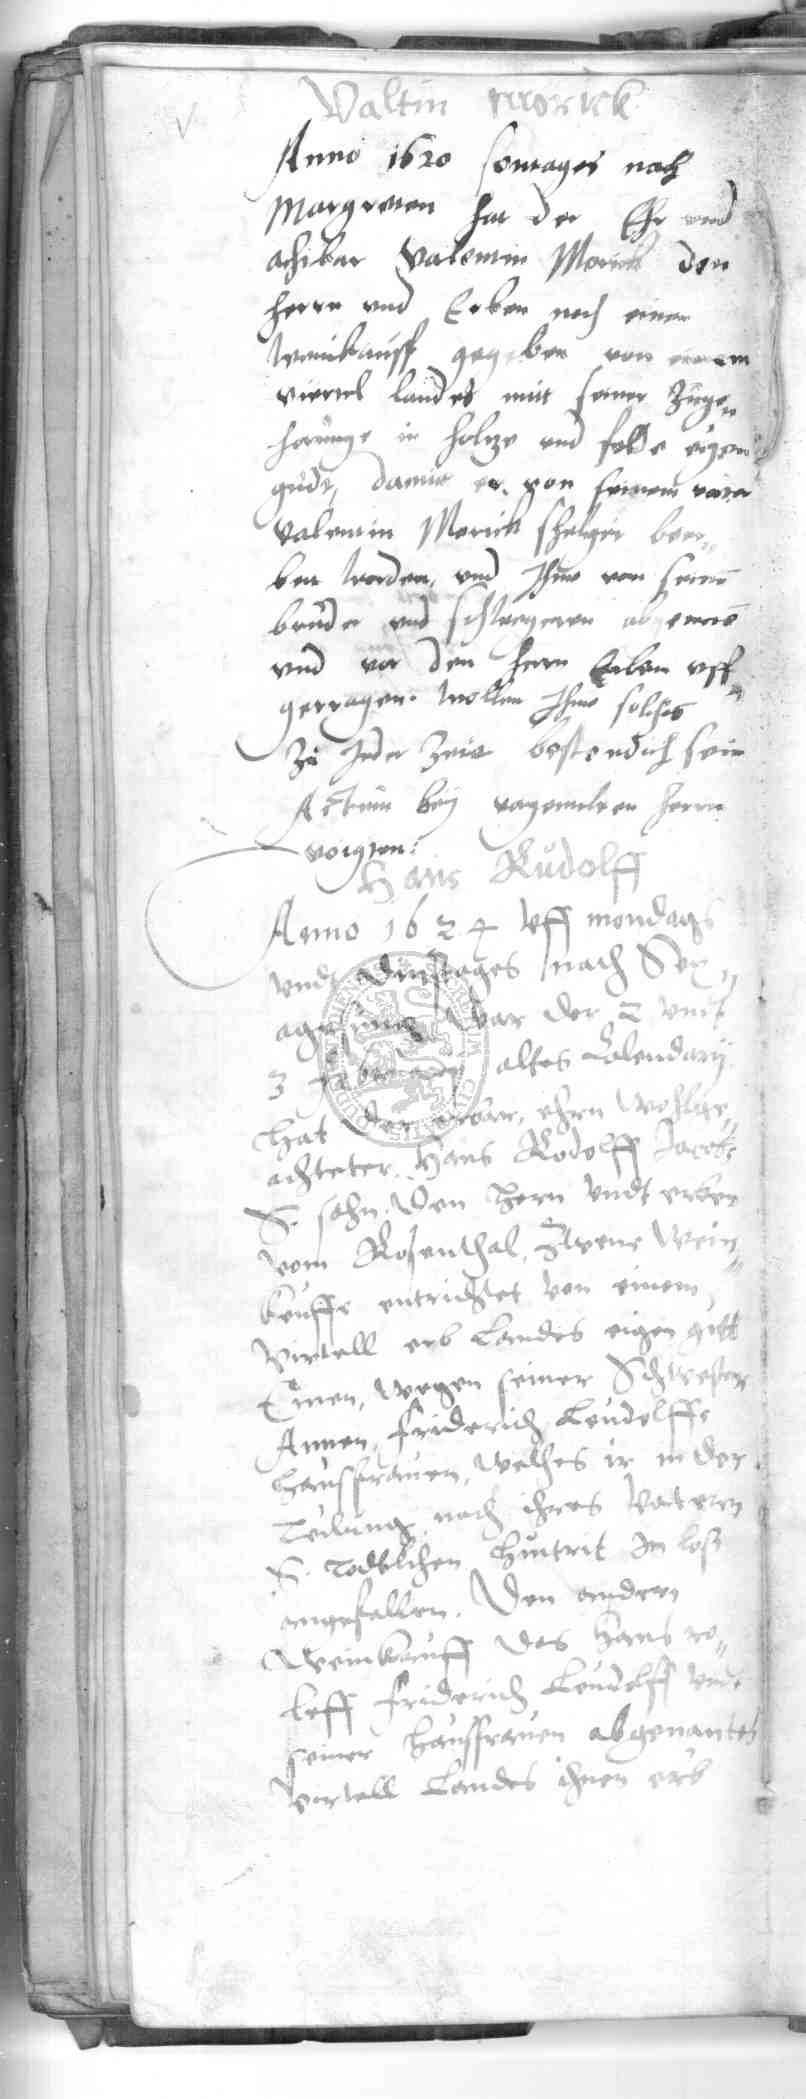 Valtin Morick
Anno 1620 sontages nach
Margreten hat der Ehr und
achtbar Valentin Morick den
herrn und Erben noch einen
Weinkauff gegeben von einem
viertel landes mit seiner Zuge„
horunge in holtze und felde eigen
gudt, damit er von seinem vater
Valentin Morick sheliger beer„
bet worden, und Ihme von seinen
bruder und schwegeren
und vor den herrn Erben uff„
getragen. wollen Ihme solches
Zu Jeder Zeit bestendich sein
Actum bey herrn
voigten.
Hans Rudolff
Anno 1624 uff mondags
undt dinstages nach Sex„
agesima war der 2 undt
3 februarij altes Calendarij
hat der erbar, ehrn wohlge„
achteter Hans Rodolff Jacobs
S. sohn. Den hern undt erben
vom Rosenthal, Zwene Wein„
keuffe entrichtet von einem
virtell erb Landes eigen gutt
Einen, wegen seiner Schwester
Annen, Friderich Leudolffs
haussfrauen, welches ir in der
teilung nach ihres Vatern
S. todtlichen hintrit Im loss
angefallen. Den andern
Weinkauff das Hans ro„
leff Friderich Leudolff undt
seiner haussfrauen abgenantes
virtell Landes ihnen erb